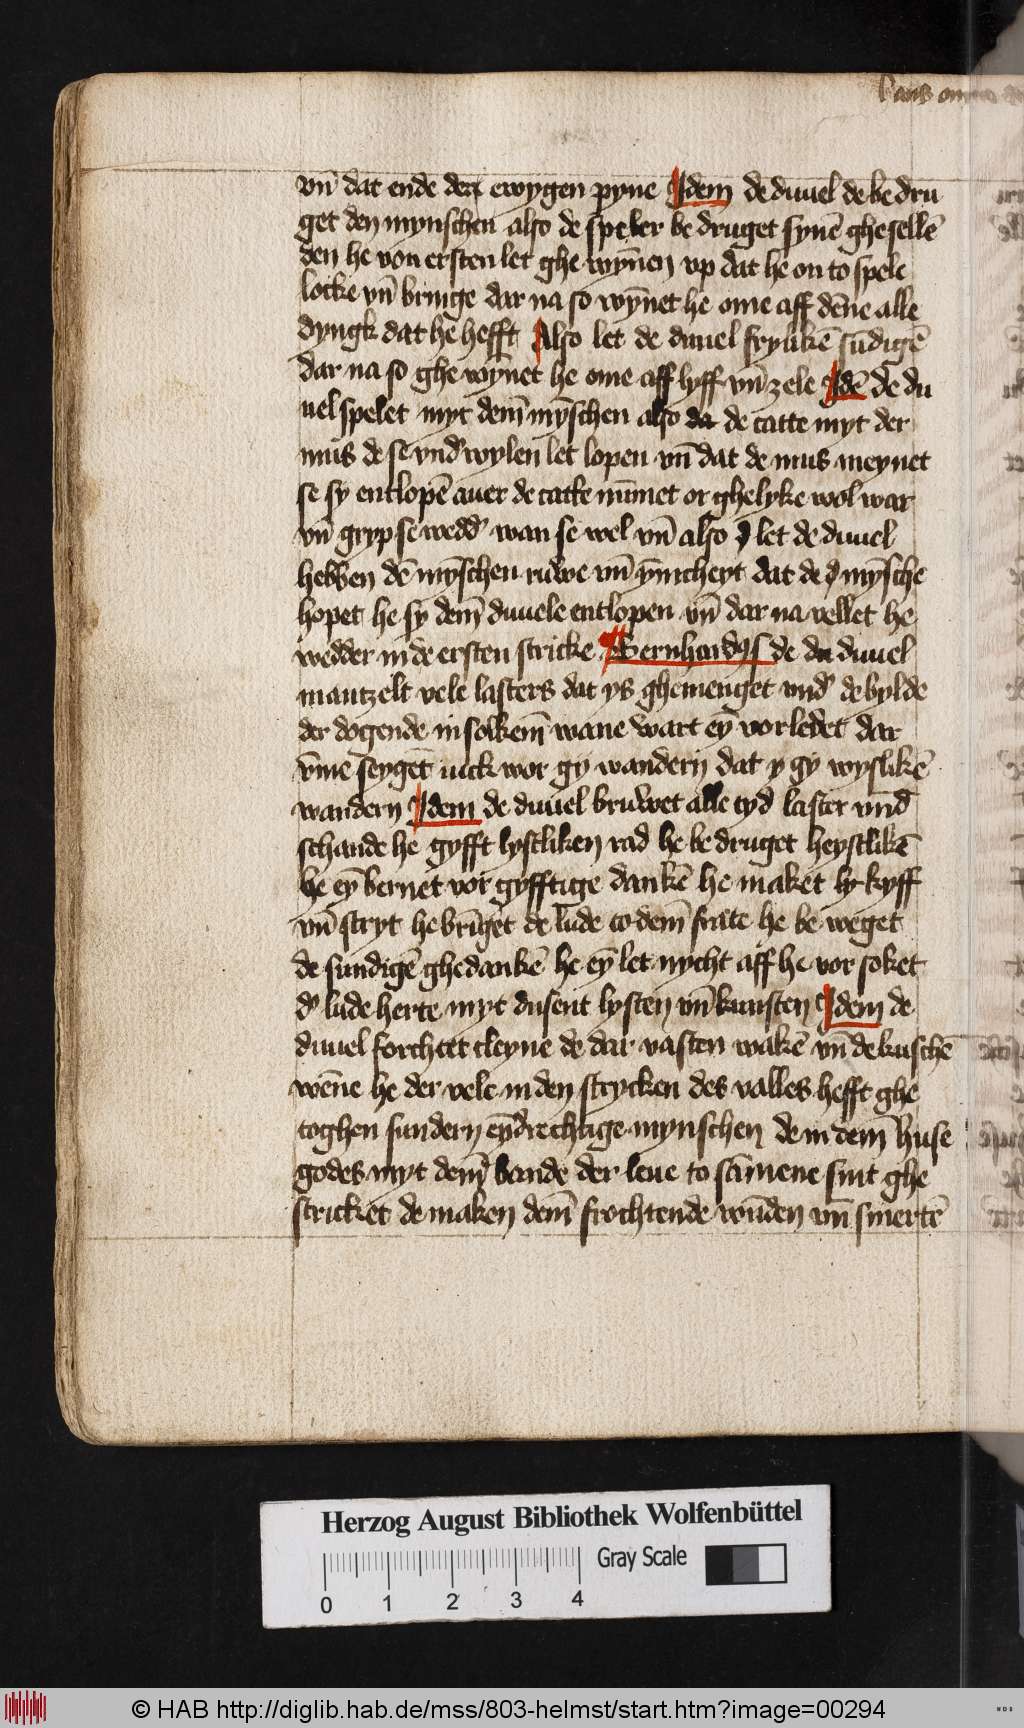 vn̄ dat ende der ewygen pyne Jdem de duuel de be dru
get den mynschen also de speler be druget synē ghesellē
den he von ersten let ghe wyn̄en vp dat he on to spele
locke vn̄ bringe dar na so wyn̄et he ome aff dēne alle
dyngk dat he hefft Also let de duuel frylikē sūdigē
dar na so ghe wyn̄et he ome aff lyff vn̄ zele Jdē de du
uel spelet myt dem̄ mȳschen also de catte myt der
mus de se vnd wylen let lopen vn̄ dat de mus meynet
se sy entlopē auer de catte nūmet or ghelyke wol war
vn̄ gryp se wedd' wan se wel vn̄ also let de duuel
hebben dē mȳschen ruwe vn̄ ȳnicheyt dat de mȳsche
hopet he sy dem̄ duuele entlopen vn̄ dar na vellet he
wedder in de ersten stricke Bernhardus de duuel
mantzelt vele lasters dat ys ghemenget vnd' de bylde
der dogende in solkem̄ wane wart eȳ vorledet dar
v̄me seyget iuck wor gy wandern dat gy wyslikē
wandern Jdem de duuel bruwet alle tyd laster vnd
schande he gyfft lystliken rad he be druget heystlikē
he eȳ bernet vor gyfftige dankē he maket ly kyff
vn̄ stryt he brīget de lude to dem̄ frate he be weget
de sundigē ghedankē he eȳ let nycht aff he vor soket
d' lude herte myt dusent lysten vn̄ kunsten Jdem de
duuel forchtet cleyne de dar vasten wakē vn̄ de kuschē
wēne he der vele in den strycken des valles hefft ghe
toghen sundern eȳdrechtige mynschen de in dem̄ huse
godes myt dem̄ bande der leue to sāmene sint ghe
stricket de maken dem̄ frochtende wūden vn̄ smertē
Herzog August Bibliothek Wolfenbüttel
0 1 2 3 4 Gray Scale
© HAB http://diglib.hab.de/mss/803-helmst/start.htm?image=00294